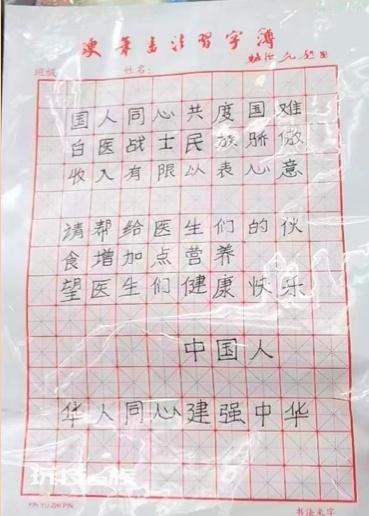 硬笔书法習字簿
班级: 姓名:
国人同心共度国难
白医战士民族骄傲
收入有限以表心意
请帮给医生们的伙
食增加点营养
望医生们健康快乐
中国人
华人同心建强中华
YIN YU ZHI PIN
书法大字